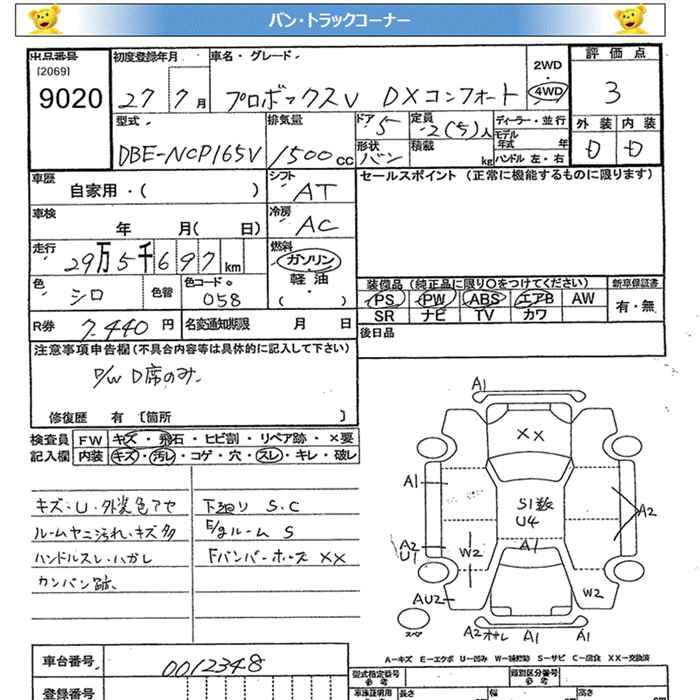 バン・トラックコーナー
出品番号
[2069]
9020
初度登録年月
27 7月
車名・グレード
プロボックスV DXコンフォート
2WD
4WD
評価点
3
型式
DBE-NCP165V
排気量
1500cc
ドア
5
形状
バン
定員
2(5)人
積載
kg
ディーラー・並行
モデル年式 年
ハンドル 左・右
外装 内装
D D
車歴
自家用・( )
シフト
AT
セールスポイント (正常に機能するものに限ります)
車検
年 月( 日)
冷房
AC
走行
29万5千697km
燃料
ガソリン
軽油
( )
色
シロ
色替
色コード
058
装備品 (純正品に限り○をつけてください) 新車保証書
PS PW ABS エアB AW
SR ナビ TV カワ
有・無
R券 7,440円
名変通知期限 月 日
後日品
注意事項申告欄(不具合内容等は具体的に記入して下さい)
P/W D席のみ.
修復歴 有 [箇所 ]
検査員 FW キズ・飛石・ヒビ割・リペア跡・×要
記入欄 内装 キズ・汚レ・コゲ・穴・スレ・キレ・破レ
キズ・U・外装色アセ
ルームヤニ汚れ・キズ多
ハンドルスレ・ハガレ
カンバン跡.
下廻り S.C
E/gルーム S
Fバンパー・ホース XX
A1
XX
A1
S1数
U4
A2
A2
U1
W2
A1
AU2
W2
スペア
A2オレ A1 A1
A-キズ E-エクボ U-凹み W-補修跡 S-サビ C-腐食 XX-交換済
車台番号 0012348
登録番号
型式指定番号
参考
類別区分番号
参考
車検証明用
長さ
幅
高さ